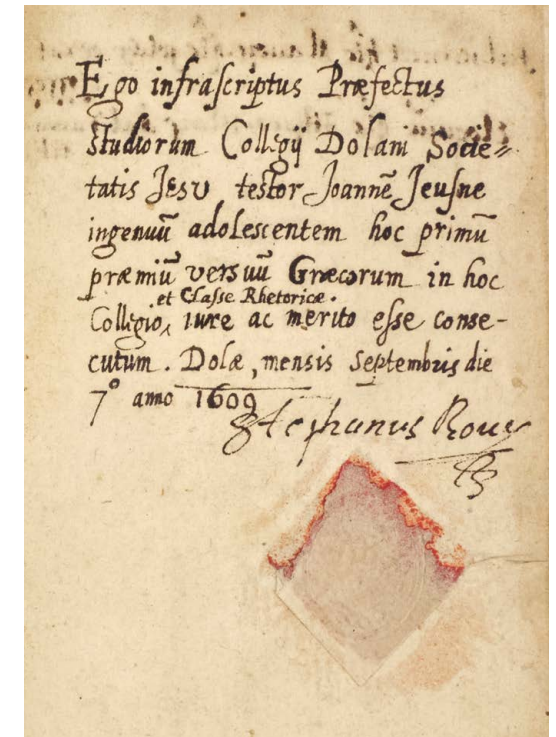 Ego infraſcriptus Præfectus
Studiorum Collegij Dolani Socie=
tatis Jesv testor Joannē Jeuſne
ingenuū adolescentem hoc primū
præmiū versuū Græcorum in hoc
et Claſse Rhetoricæ.
Collegio, iure ac merito eſse conse-
cutum. Dolæ, mensis Septembris die
7º anno 1609
Stephanus